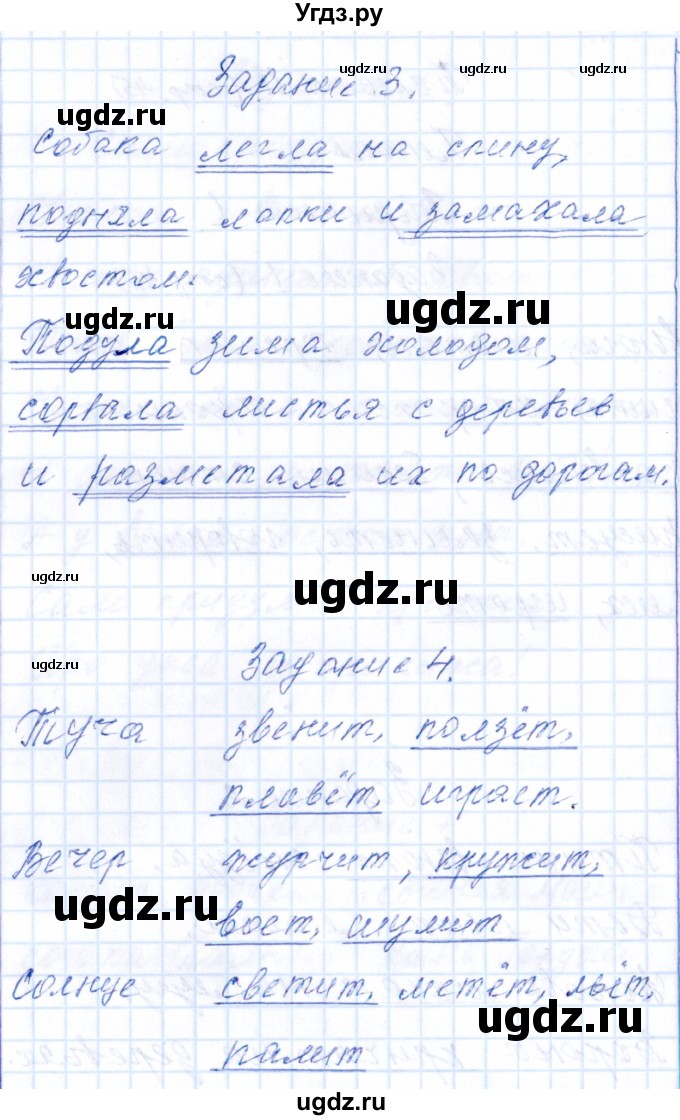 Угдз.ру
Задание 3.
Собака легла на спину,
подняла лапки и замахала
хвостом.
Подула зима холодом,
сорвала листья с деревьев
и разметала их по дорогам.
Задание 4.
Туча звенит, ползёт,
плавёт, играет.
Вечер журчит, кружит,
воет, шумит
Солнце светит, метёт, льёт,
палит
ugdz.ru
ugdz.ru
ugdz.ru
ugdz.ru
ugdz.ru
ugdz.ru
ugdz.ru
ugdz.ru
ugdz.ru
ugdz.ru
ugdz.ru
ugdz.ru
ugdz.ru
ugdz.ru